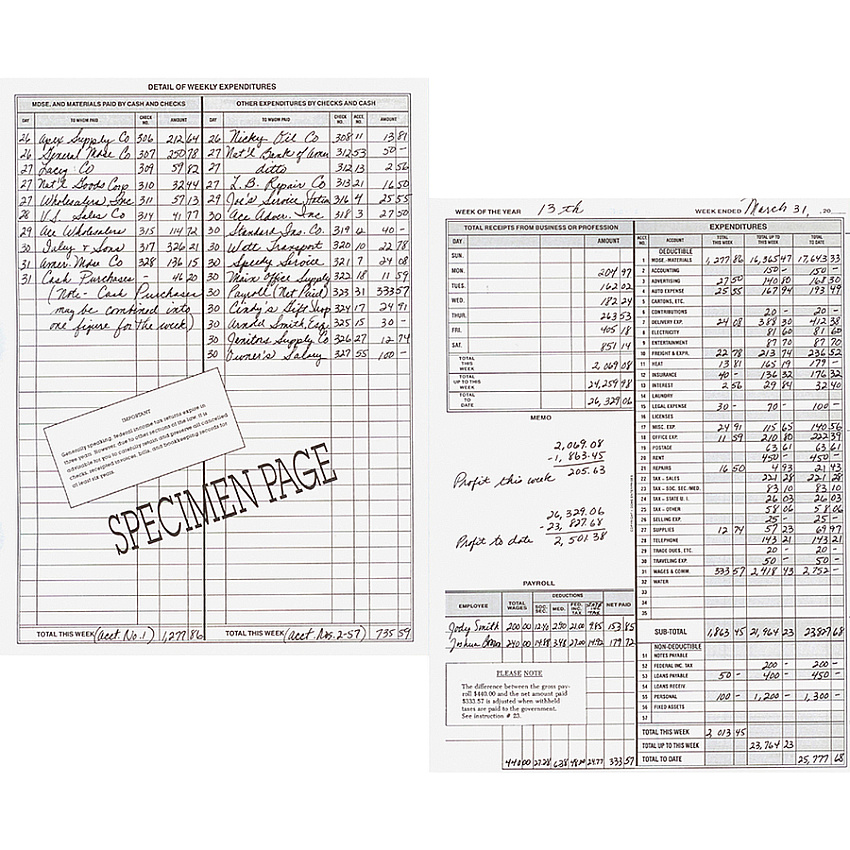 DETAIL OF WEEKLY EXPENDITURES
MDSE. AND MATERIALS PAID BY CASH AND CHECKS
DAY TO WHOM PAID CHECK NO. AMOUNT
26 Apex Supply Co 306 212 64
26 General Mdse Co 307 250 78
27 Lacey Co 309 59 82
27 Nat'l Goods Corp 310 32 44
27 Wholesalers Inc 311 57 13
28 V.I. Sales Co 314 41 77
29 Ace Wholesalers 315 114 72
30 Inley & Sons 317 326 21
31 Amer Mdse Co 328 136 15
31 Cash Purchases - 46 20
(Note - Cash Purchases
may be combined into
one figure for the week)
TOTAL THIS WEEK (Acct. No. 1) 1,277 86
OTHER EXPENDITURES BY CHECKS AND CASH
DAY TO WHOM PAID CHECK NO. ACCT. NO. AMOUNT
26 Nicky Oil Co 308 11 13 81
27 Nat'l Bank of Amer 312 53 50 -
27 ditto 312 13 2 56
27 L.B. Repair Co 313 21 16 50
29 Joe's Service Station 316 4 25 55
30 Ace Adver. Inc 318 3 27 50
30 Standard Ins. Co. 319 12 40 -
30 Watt Transport 320 10 22 78
30 Speedy Service 321 7 24 08
30 Main Office Supply 322 18 11 59
30 Payroll (Net Paid) 323 31 333 57
30 Cindy's Gift Shop 324 17 24 91
30 Arnold Smith Esq 325 15 30 -
30 Janitors Supply Co 326 27 12 74
30 Owner's Salary 327 55 100 -
TOTAL THIS WEEK (Acct. Nos. 2-57) 735 59
IMPORTANT
Generally speaking, federal income tax returns expire in
three years. However, due to other sections of the law, it is
advisable for you to carefully retain and preserve all cancelled
checks, receipted invoices, bills, and bookkeeping records for
at least six years.
SPECIMEN PAGE
WEEK OF THE YEAR 13th WEEK ENDED March 31, 20
TOTAL RECEIPTS FROM BUSINESS OR PROFESSION
DAY AMOUNT
SUN.
MON. 204 97
TUE. 162 02
WED. 182 24
THUR. 263 53
FRI. 405 18
SAT. 851 14
TOTAL THIS WEEK 2,069 08
TOTAL UP TO THIS WEEK 24,259 98
TOTAL TO DATE 26,329 06
MEMO
2,069.08
- 1,863.45
Profit this week 205.63
26,329.06
- 23,827.68
Profit to date 2,501.38
PAYROLL
EMPLOYEE TOTAL WAGES DEDUCTIONS SOC. SEC. MED. FED. INC. TAX STATE INC. TAX NET PAID
Jody Smith 200 00 12.40 2.90 21.00 9.85 153 85
Joshua 240 00 14.88 3.48 27.00 14.92 179 72
PLEASE NOTE
The difference between the gross pay-
roll $440.00 and the net amount paid
$333.57 is adjusted when withheld
taxes are paid to the government.
See instruction # 23.
440 00 27.28 6.38 48.00 24.77 333 57
EXPENDITURES
ACCT. NO. ACCOUNT TOTAL THIS WEEK TOTAL UP TO THIS WEEK TOTAL TO DATE
DEDUCTIBLE
1 MDSE.-MATERIALS 1,277 86 16,365 47 17,643 33
2 ACCOUNTING 150 - 150 -
3 ADVERTISING 27 50 140 80 168 30
4 AUTO EXPENSE 25 55 167 94 193 49
5 CARTONS, ETC.
6 CONTRIBUTIONS 20 - 20 -
7 DELIVERY EXP. 24 08 388 30 412 38
8 ELECTRICITY 81 60 81 60
9 ENTERTAINMENT 87 70 87 70
10 FREIGHT & EXPR. 22 78 213 74 236 52
11 HEAT 13 81 165 19 179 -
12 INSURANCE 40 - 136 32 176 32
13 INTEREST 2 56 29 84 32 40
14 LAUNDRY
15 LEGAL EXPENSE 30 - 70 - 100 -
16 LICENSES
17 MISC. EXP. 24 91 115 65 140 56
18 OFFICE EXP. 11 59 210 80 222 39
19 POSTAGE 63 61 63 61
20 RENT 450 - 450 -
21 REPAIRS 16 50 4 93 21 43
22 TAX - SALES 221 28 221 28
23 TAX - SOC. SEC./MED. 83 10 83 10
24 TAX - STATE U. I. 26 03 26 03
25 TAX - OTHER 58 06 58 06
26 SELLING EXP. 25 - 25 -
27 SUPPLIES 12 74 57 23 69 97
28 TELEPHONE 143 21 143 21
29 TRADE DUES, ETC. 20 - 20 -
30 TRAVELING EXP. 50 - 50 -
31 WAGES & COMM. 333 57 2,418 43 2,752 -
32 WATER
33
34
35
SUB-TOTAL 1,863 45 21,964 23 23,827 68
NON-DEDUCTIBLE
51 NOTES PAYABLE
52 FEDERAL INC. TAX 200 - 200 -
53 LOANS PAYABLE 50 - 400 - 450 -
54 LOANS RECEIV
55 PERSONAL 100 - 1,200 - 1,300 -
56 FIXED ASSETS
57
TOTAL THIS WEEK 2,013 45
TOTAL UP TO THIS WEEK 23,764 23
TOTAL TO DATE 25,777 68